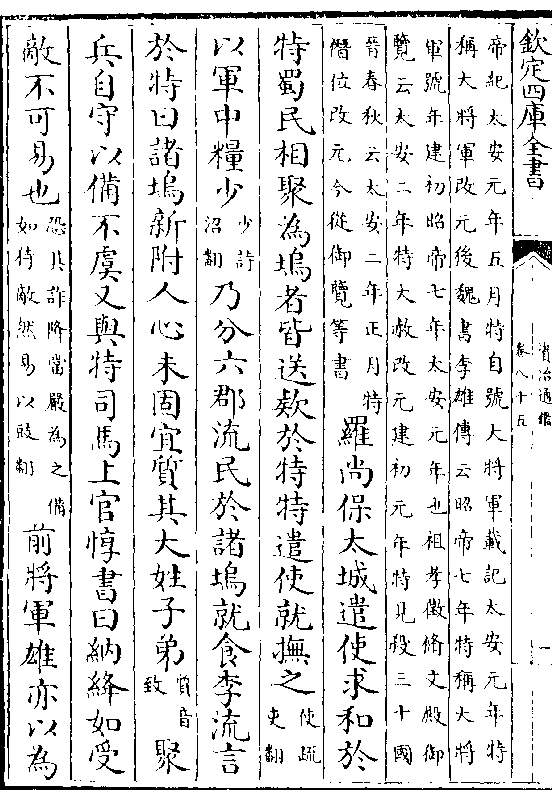 欽定四庫全書
資治通鑑
卷八十五
一
帝紀太安元年五月特自號大將軍載記太安元年特
稱大將軍改元後魏書李雄傳云昭帝七年特稱大將
軍號年建初昭帝七年太安元年也祖孝徵脩文殿御
覽云太安二年特大赦改元建初元年特見殺三十國
晉春秋云太安二年正月特
僭位改元今從御覽等書
羅尚保太城遣使求和於
特蜀民相聚為塢者皆送欵於特特遣使就撫之
使疏
吏翻
以軍中糧少
少詩
沼翻
乃分六郡流民於諸塢就食李流言
於特曰諸塢新附人心未固宜質其大姓子弟
質音
致
聚
兵自守以備不虞又與特司馬上官惇書曰納絳如受
敵不可易也
恐其詐降當嚴為之備
如待敵然易以豉翻
前將軍雄亦以為